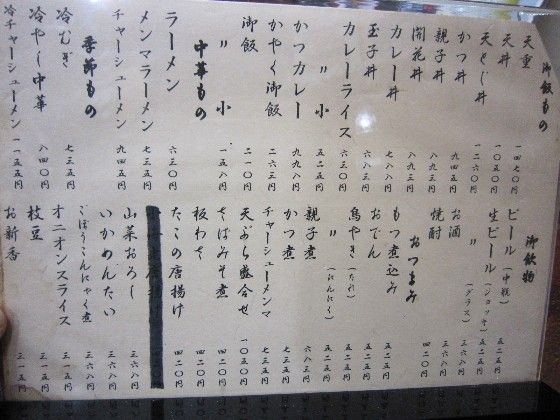 御飯もの
天重 一四七〇円
天丼 一〇五〇円
天とじ丼 一二六〇円
かつ丼 九四五円
親子丼 八九三円
開花丼 八九三円
カレー丼 七八八円
玉子丼 六八三円
カレーライス 六三〇円
〃 小 五二五円
かつカレー 九九八円
かやく御飯 二六三円
御飯 二一〇円
〃 小 一五八円
中華もの
ラーメン 六三〇円
メンマラーメン 七三五円
チャーシューメン 九四五円
季節もの
冷むぎ 七三五円
冷やし中華 八四〇円
冷チャーシューメン 一一五五円
御飲物
ビール(中瓶) 五二五円
生ビール(ジョッキ) 五二五円
〃(グラス) 三六八円
お酒 三六八円
焼酎 四二〇円
おつまみ
もつ煮込み 五二五円
おでん 五二五円
鳥やき(たれ) 五二五円
〃(にんにく) 五二五円
親子煮 六八三円
かつ煮 七三五円
チャーシューメンマ 七三五円
天ぷら盛合せ 一〇五〇円
そばみそ煮 四二〇円
板わさ 四二〇円
たこの唐揚げ 四二〇円
山菜おろし 三六八円
いかめんたい 三六八円
ごぼうこんにゃく煮 三六八円
オニオンスライス 三一五円
枝豆 三一五円
お新香 三一五円